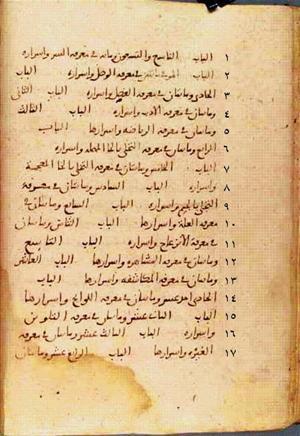 ١ الباب التاسع والتسعون ومائه في معرفه السر واسراره
٢ الباب الموفي مائتين في معرفه الوصل واسراره الباب
٣ الحادي ومائتان في معرفه الفصل واسراره الباب الثاني
٤ ومائتان في معرفه الادب واسراره الباب الثالث
٥ ومائتان في معرفه الرياضه واسرارها الباب
٦ الرابع ومائتان في معرفه التحلي بالحا المهمله واسراره
٧ الباب الخامس ومائتان في معرفه التخلي بالخا المعجمة
٨ واسراره الباب السادس ومائتان في معرفة
٩ التجلي بالجيم واسراره الباب السابع ومائتان في
١٠ معرفه العلة واسرارها الباب الثامن ومائتان
١١ في معرفة الانزعاج واسراره الباب التاسع
١٢ ومائتان في معرفه المشاهده واسرارها الباب العاشر
١٣ ومائتان في معرفه المكاشفه واسرارها الباب
١٤ الحادي احد عشر ومائتان في معرفه اللوائح واسرارها
١٥ الباب الثاني عشر ومائتان في معرفه التلوين
١٦ واسراره الباب الثالث عشر ومائتان في معرفه
١٧ الغيرة واسرارها الباب الرابع عشر ومائتان